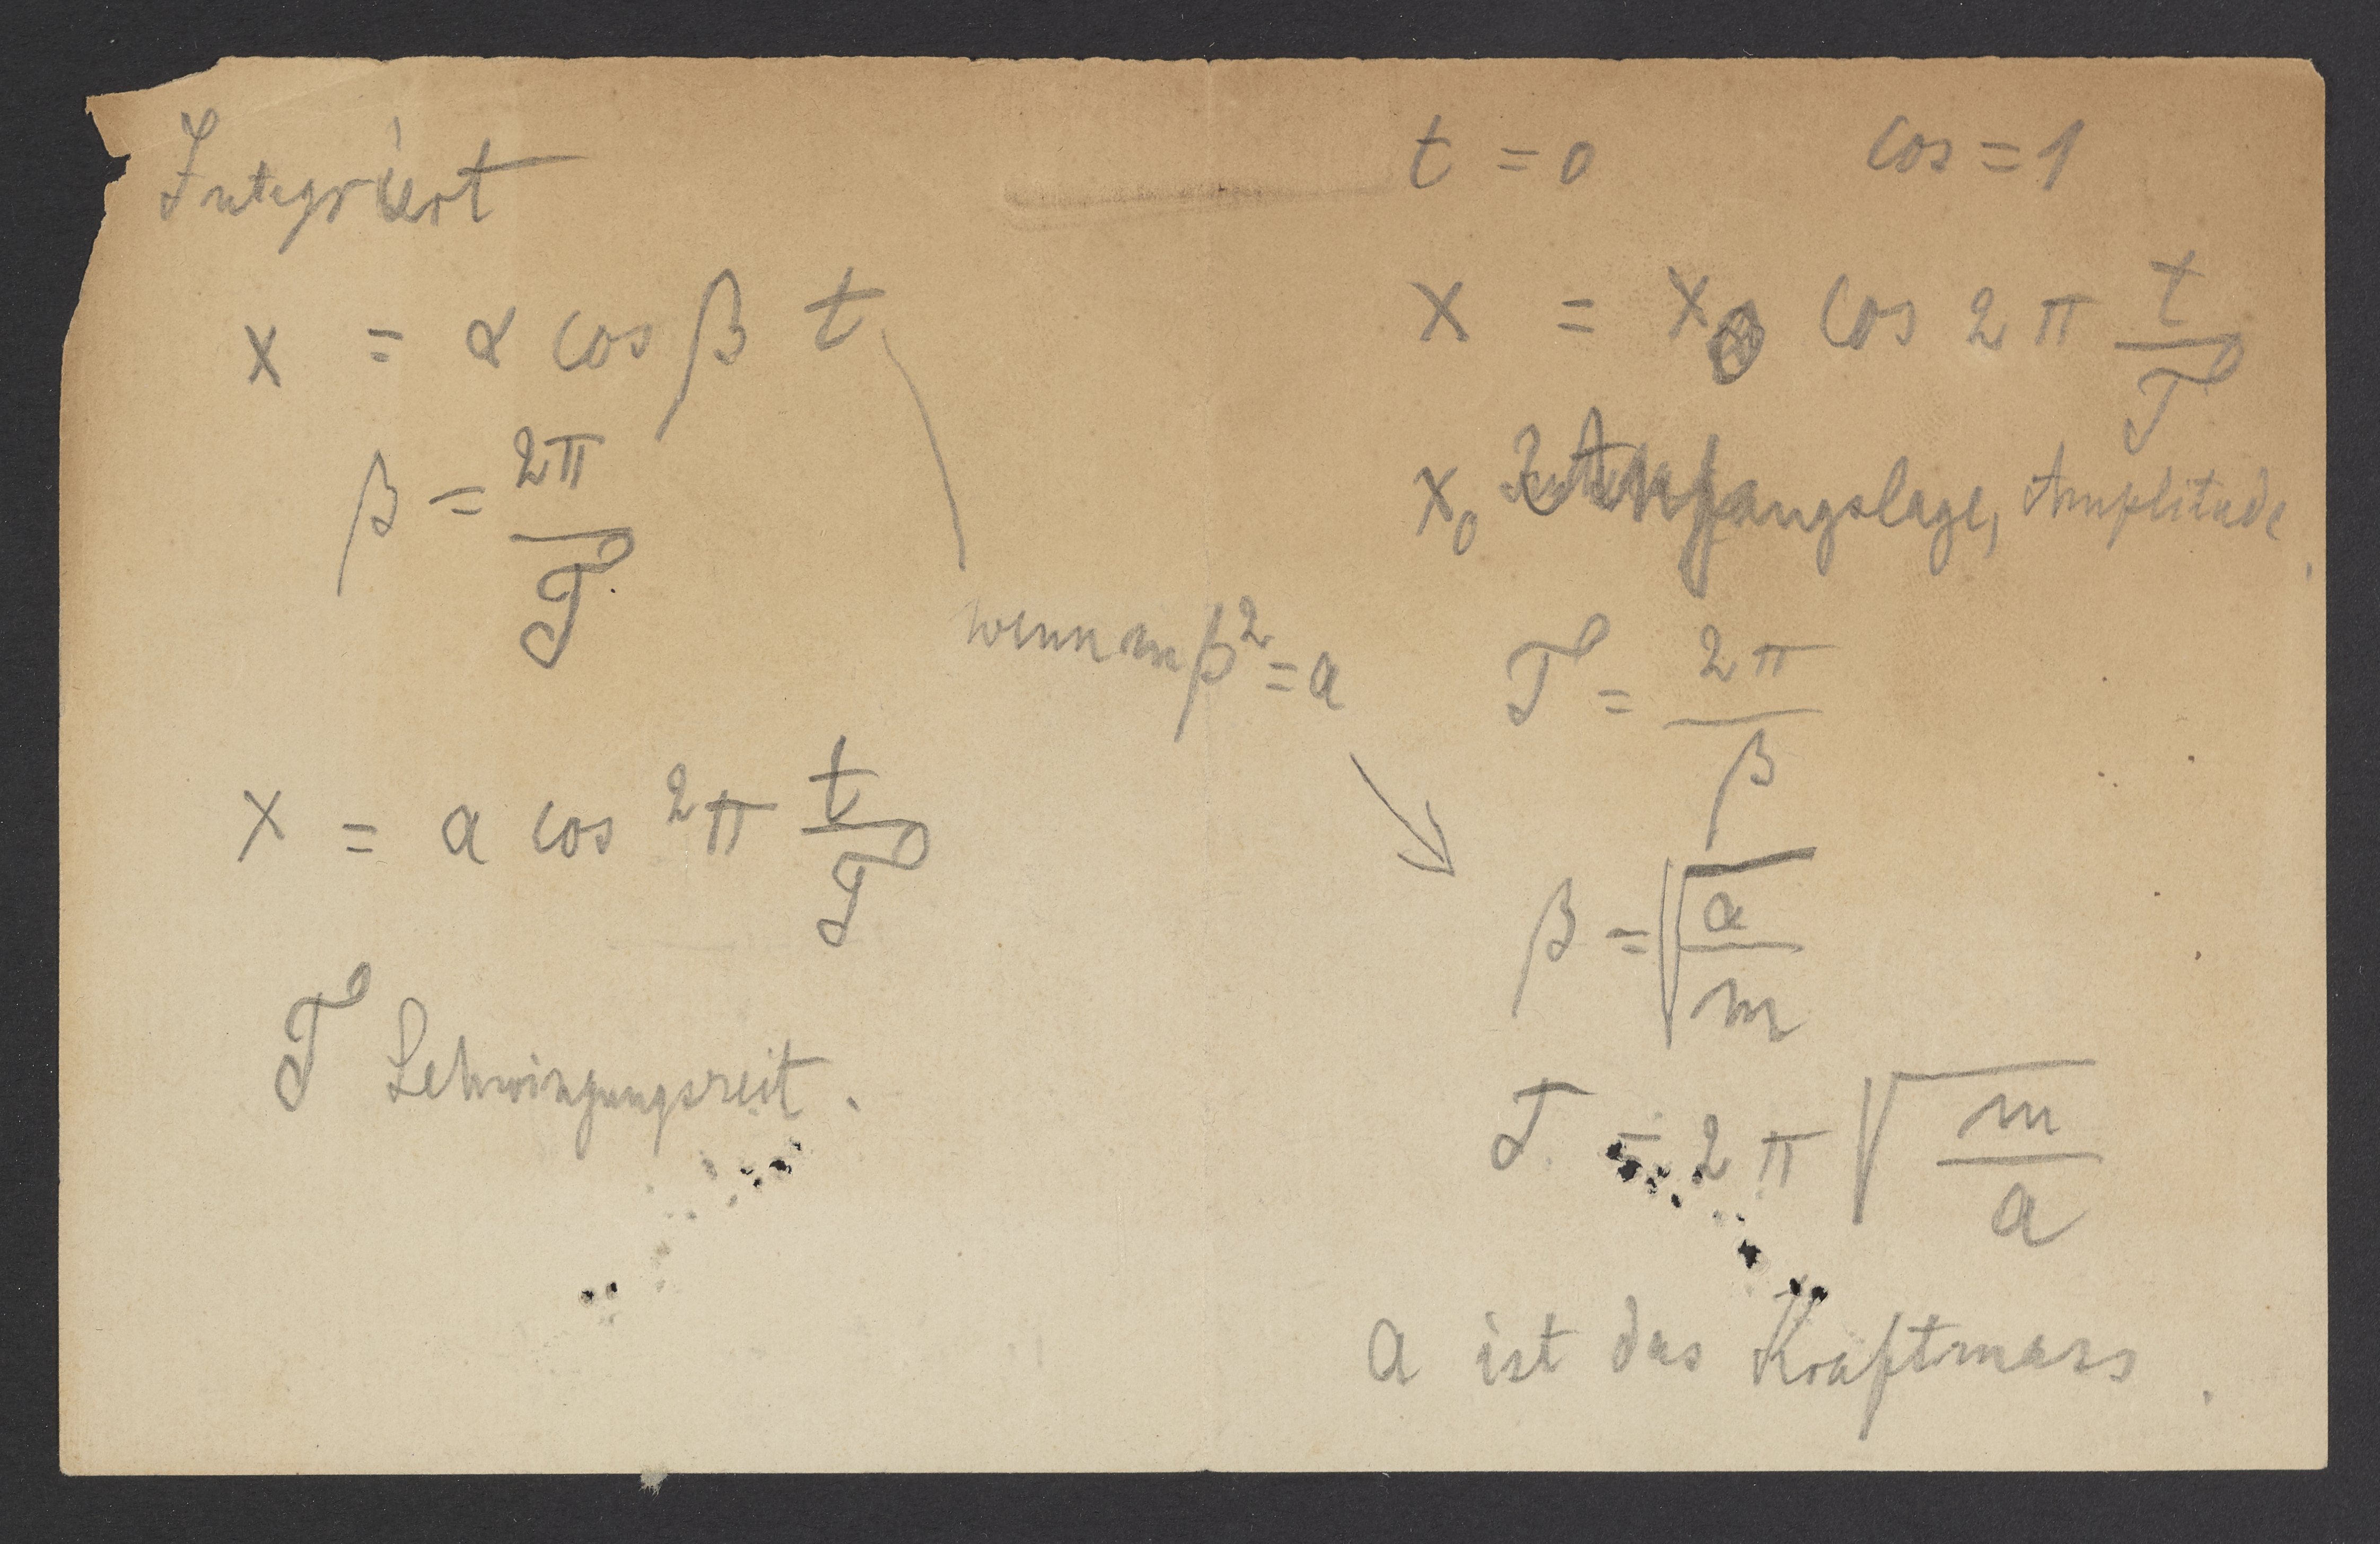 Integriert
x = α cos β t
β = 2π / T
wenn m β² = a
x = a cos 2π t / T
T Schwingungszeit.
t = 0 cos = 1
x = x₀ cos 2π t / T
x₀ Anfangslage, Amplitude.
T = 2π / β
β = √(a / m)
T = 2π √(m / a)
a ist das Kraftmass.